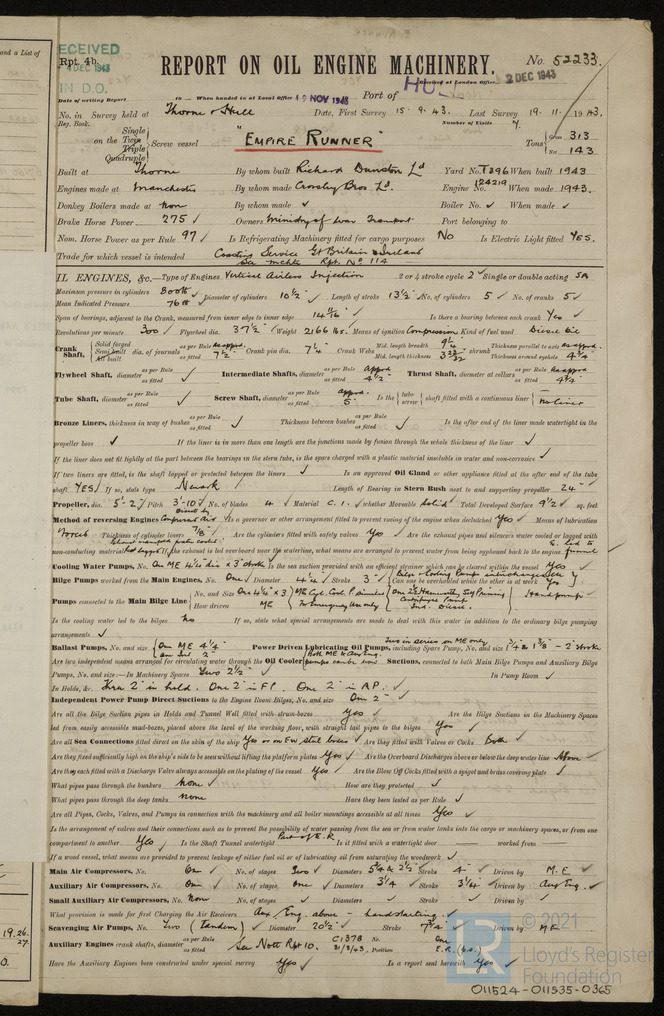 and a List of
RECEIVED
4 DEC 1943
IN D.O.
Rpt. 4b.
REPORT ON OIL ENGINE MACHINERY.
No. 52233.
Received at London Office 2 DEC 1943
Date of writing Report 19 When handed in at Local Office 19 NOV 1943 Port of HULL
No. in Survey held at Thorne & Hull Date, First Survey 15-9-43. Last Survey 19-11-1943.
Reg. Book. Number of Visits 7.
on the Single Twin Triple Quadruple Screw vessel "EMPIRE RUNNER" Tons Gross 313 Net 143
Built at Thorne By whom built Richard Dunston Ld Yard No. T396 When built 1943
Engines made at Manchester By whom made Crossley Bros Ld. Engine No. 124219 When made 1943.
Donkey Boilers made at None By whom made ✓ Boiler No. ✓ When made ✓
Brake Horse Power 275 ✓ Owners Ministry of War Transport Port belonging to
Nom. Horse Power as per Rule 97 ✓ Is Refrigerating Machinery fitted for cargo purposes No Is Electric Light fitted Yes.
Trade for which vessel is intended Coasting Service Gt Britain & Ireland
See Mchtr Rpt. No 114
IL ENGINES, &c.—Type of Engines Vertical Airless Injection 2 or 4 stroke cycle 2 ✓ Single or double acting SA
Maximum pressure in cylinders 800 lb ✓ Diameter of cylinders 10½" ✓ Length of stroke 13½" ✓ No. of cylinders 5 ✓ No. of cranks 5 ✓
Mean Indicated Pressure 76 lb ✓
Span of bearings, adjacent to the Crank, measured from inner edge to inner edge Is there a bearing between each crank Yes ✓
Revolutions per minute 300 ✓ Flywheel dia. 37½" ✓ Weight 2166 lbs. ✓ Means of ignition Compression Kind of fuel used Diesel Oil
Crank Shaft, Solid forged Semi built All built dia. of journals as per Rule as appd. as fitted 7½" Crank pin dia. 7¼" Crank Webs Mid. length breadth 9¼ Mid. length thickness shrunk Thickness parallel to axis as appd. Thickness around eyehole 4¼
Flywheel Shaft, diameter as per Rule as fitted ✓ Intermediate Shafts, diameter as per Rule appd as fitted 4½" Thrust Shaft, diameter at collars as per Rule as appd as fitted 4¾"
Tube Shaft, diameter as per Rule as fitted ✓ Screw Shaft, diameter as per Rule appd. as fitted 5" Is the tube screw shaft fitted with a continuous liner No liner
Bronze Liners, thickness in way of bushes as per Rule as fitted ✓ Thickness between bushes as per Rule as fitted ✓ Is the after end of the liner made watertight in the
propeller boss ✓ If the liner is in more than one length are the junctions made by fusion through the whole thickness of the liner ✓
If the liner does not fit tightly at the part between the bearings in the stern tube, is the space charged with a plastic material insoluble in water and non-corrosive ✓
If two liners are fitted, is the shaft lapped or protected between the liners ✓ Is an approved Oil Gland or other appliance fitted at the after end of the tube
shaft YES ✓ If so, state type Newark ✓ Length of Bearing in Stern Bush next to and supporting propeller 24"
Propeller, dia. 5'-2" ✓ Pitch 3'-10" ✓ No. of blades 4 ✓ Material C.I. ✓ whether Moveable Solid ✓ Total Developed Surface 9½ sq. feet
Method of reversing Engines Direct by Compressed air Is a governor or other arrangement fitted to prevent racing of the engine when declutched Yes ✓ Means of lubrication
Forced Thickness of cylinder liners 7/8" ✓ Are the cylinders fitted with safety valves Yes ✓ Are the exhaust pipes and silencers water cooled or lagged with
non-conducting material If the exhaust is led overboard near the waterline, what means are arranged to prevent water from being syphoned back to the engine E. led to funnel ✓
Cooling Water Pumps, No. One ME 4¼" dia x 3" stroke Is the sea suction provided with an efficient strainer which can be cleared within the vessel Yes ✓
Bilge Pumps worked from the Main Engines, No. One ✓ Diameter 4¼" ✓ Stroke 3" ✓ Can one be overhauled while the other is at work Bilge & Cooling Pumps interchangeable Yes ✓
Pumps connected to the Main Bilge Line No. and Size One 4¼ x 3 How driven ME Hand pump
Is the cooling water led to the bilges No If so, state what special arrangements are made to deal with this water in addition to the ordinary bilge pumping
arrangements ✓
Ballast Pumps, No. and size One ME 4¼" Power Driven Lubricating Oil Pumps, including Spare Pump, No. and size Two in series on ME only
Are two independent means arranged for circulating water through the Oil Cooler Suctions, connected to both Main Bilge Pumps and Auxiliary Bilge
Pumps, No. and size:—In Machinery Spaces Two 2½" ✓ In Pump Room ✓
In Holds, &c. Three 2" in hold. One 2" in F.P. One 2" in A.P. ✓
Independent Power Pump Direct Suctions to the Engine Room Bilges, No. and size One 2" ✓
Are all the Bilge Suction pipes in Holds and Tunnel Well fitted with strum-boxes Yes ✓ Are the Bilge Suctions in the Machinery Spaces
led from easily accessible mud-boxes, placed above the level of the working floor, with straight tail pipes to the bilges Yes ✓
Are all Sea Connections fitted direct on the skin of the ship Yes or on F.W. steel boxes ✓ Are they fitted with Valves or Cocks Both ✓
Are they fixed sufficiently high on the ship's side to be seen without lifting the platform plates Yes ✓ Are the Overboard Discharges above or below the deep water line Above ✓
Are they each fitted with a Discharge Valve always accessible on the plating of the vessel Yes ✓ Are the Blow Off Cocks fitted with a spigot and brass covering plate ✓
What pipes pass through the bunkers None ✓ How are they protected ✓
What pipes pass through the deep tanks None Have they been tested as per Rule ✓
Are all Pipes, Cocks, Valves, and Pumps in connection with the machinery and all boiler mountings accessible at all times Yes ✓
Is the arrangement of valves and their connections such as to prevent the possibility of water passing from the sea or from water tanks into the cargo or machinery spaces, or from one
compartment to another Yes ✓ Is the Shaft Tunnel watertight Part of E.R Is it fitted with a watertight door — worked from —
If a wood vessel, what means are provided to prevent leakage of either fuel oil or of lubricating oil from saturating the woodwork ✓
Main Air Compressors, No. One ✓ No. of stages Two ✓ Diameters 5¾ & 2½" Stroke 4" ✓ Driven by M.E
Auxiliary Air Compressors, No. One ✓ No. of stages one ✓ Diameters 3¼ ✓ Stroke 3¼ ✓ Driven by Aux Eng. ✓
Small Auxiliary Air Compressors, No. None No. of stages ✓ Diameters ✓ Stroke ✓ Driven by ✓
What provision is made for first Charging the Air Receivers Aux Eng. above - hand starting. ✓
Scavenging Air Pumps, No. Two (Tandem) ✓ Diameter 20½" ✓ Stroke 7¾" ✓ Driven by M.E
Auxiliary Engines crank shafts, diameter as per Rule as fitted See Nott Rpt 10. C1378 No. One
21/8/43 Position E.R.
Have the Auxiliary Engines been constructed under special survey Yes ✓ Is a report sent herewith Yes ✓
19.26.
27.
0.
LR
© 2021
Lloyd's Register
Foundation
011524-011535-0365